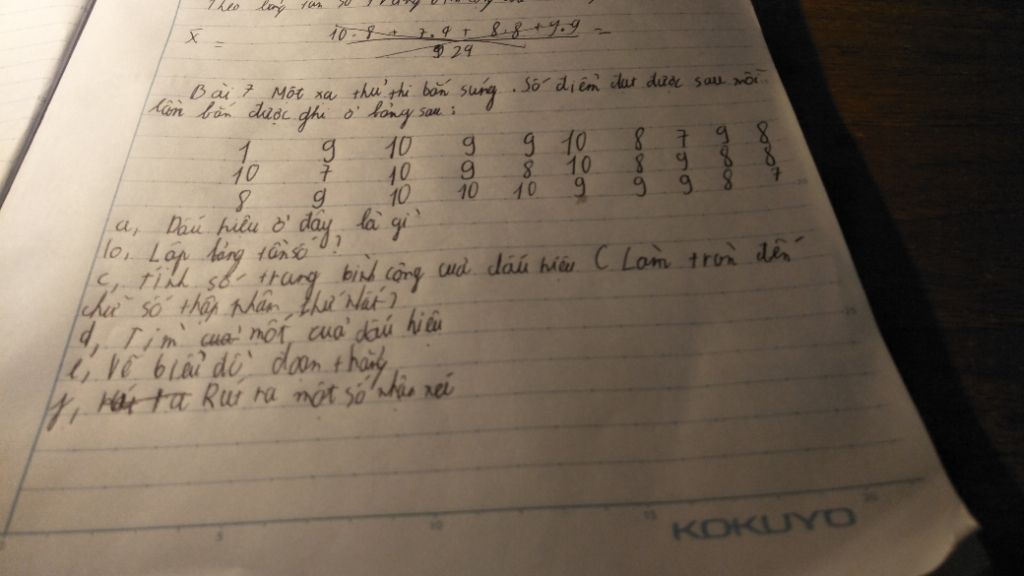 Theo bảng tần số
X = 10.8 + 7.9 + 8.8 + 9.9 =
9 29
Bài 7 Một xạ thủ thi bắn súng. Số điểm đạt được sau mỗi
lần bắn được ghi ở bảng sau:
1 9 10 9 9 10 8 7 9 8
10 7 10 9 8 10 8 9 8 8
8 9 10 10 10 9 9 9 8 7
a, Dấu hiệu ở đây là gì
b, Lập bảng tần số?
c, Tính số trung bình cộng của dấu hiệu (Làm tròn đến
chữ số thập phân thứ nhất)
d, Tìm của mốt của dấu hiệu
e, Vẽ biểu đồ đoạn thẳng
f, rút ra Rút ra một số nhận xét
5 10 15 20
KOKUYO